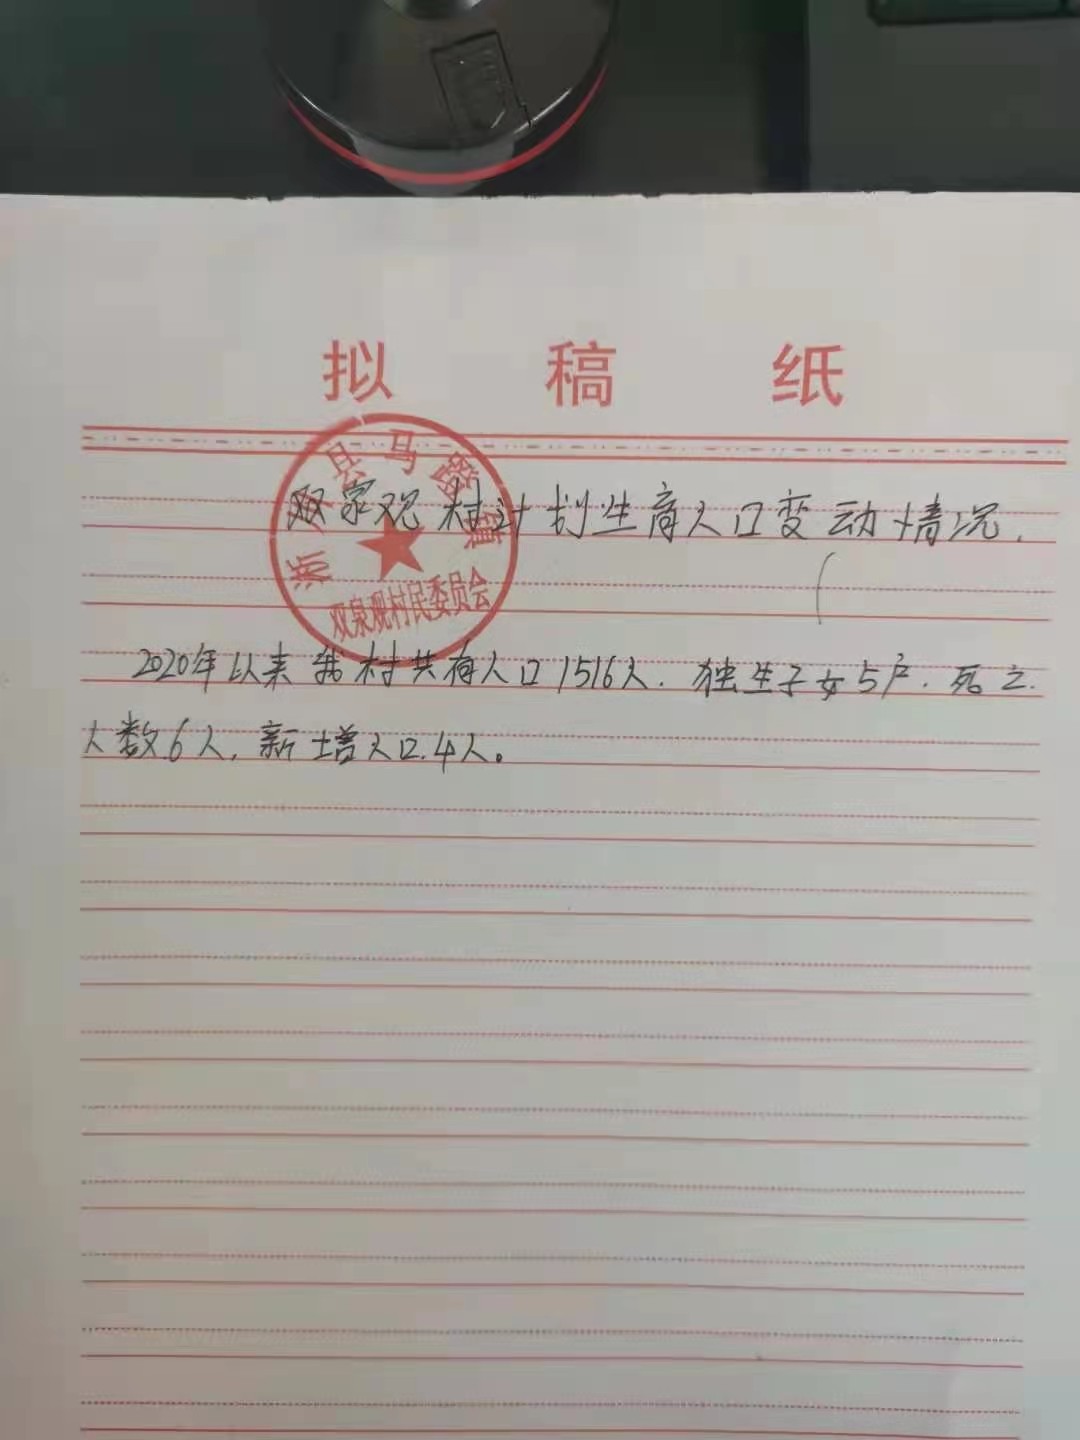 拟稿纸
双家观村计划生育人口变动情况.
浙川县马蹬镇
双泉观村民委员会
2020年以来我村共有人口1516人.独生子女5户.死亡
人数6人,新增人口.4人。